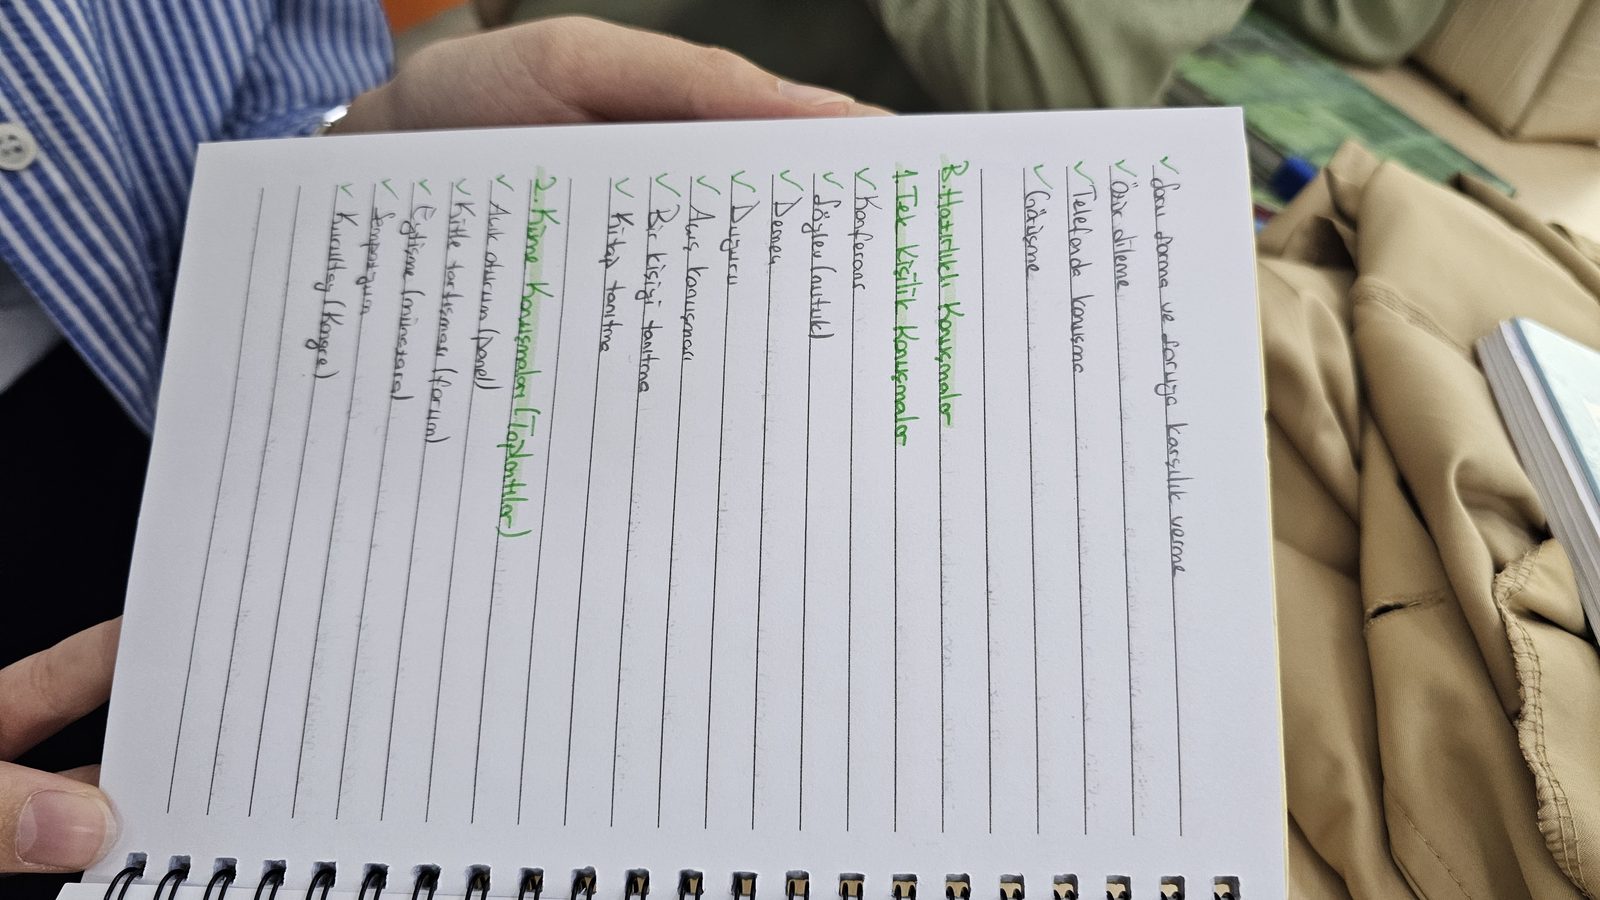 ✓ Soru sorma ve soruya karşılık verme
✓ Özür dileme
✓ Telefonda konuşma
✓ Görüşme
B. Hazırlıklı Konuşmalar
1. Tek Kişilik Konuşmalar
✓ Konferans
✓ Söylev (nutuk)
✓ Demeç
✓ Duyuru
✓ Açış konuşması
✓ Bir kişiyi tanıtma
✓ Kitap tanıtma
2. Küme Konuşmaları (Toplantılar)
✓ Açık oturum (panel)
✓ Kitle tartışması (forum)
✓ Eytişme (münazara)
✓ Sempozyum
✓ Kurultay (Kongre)